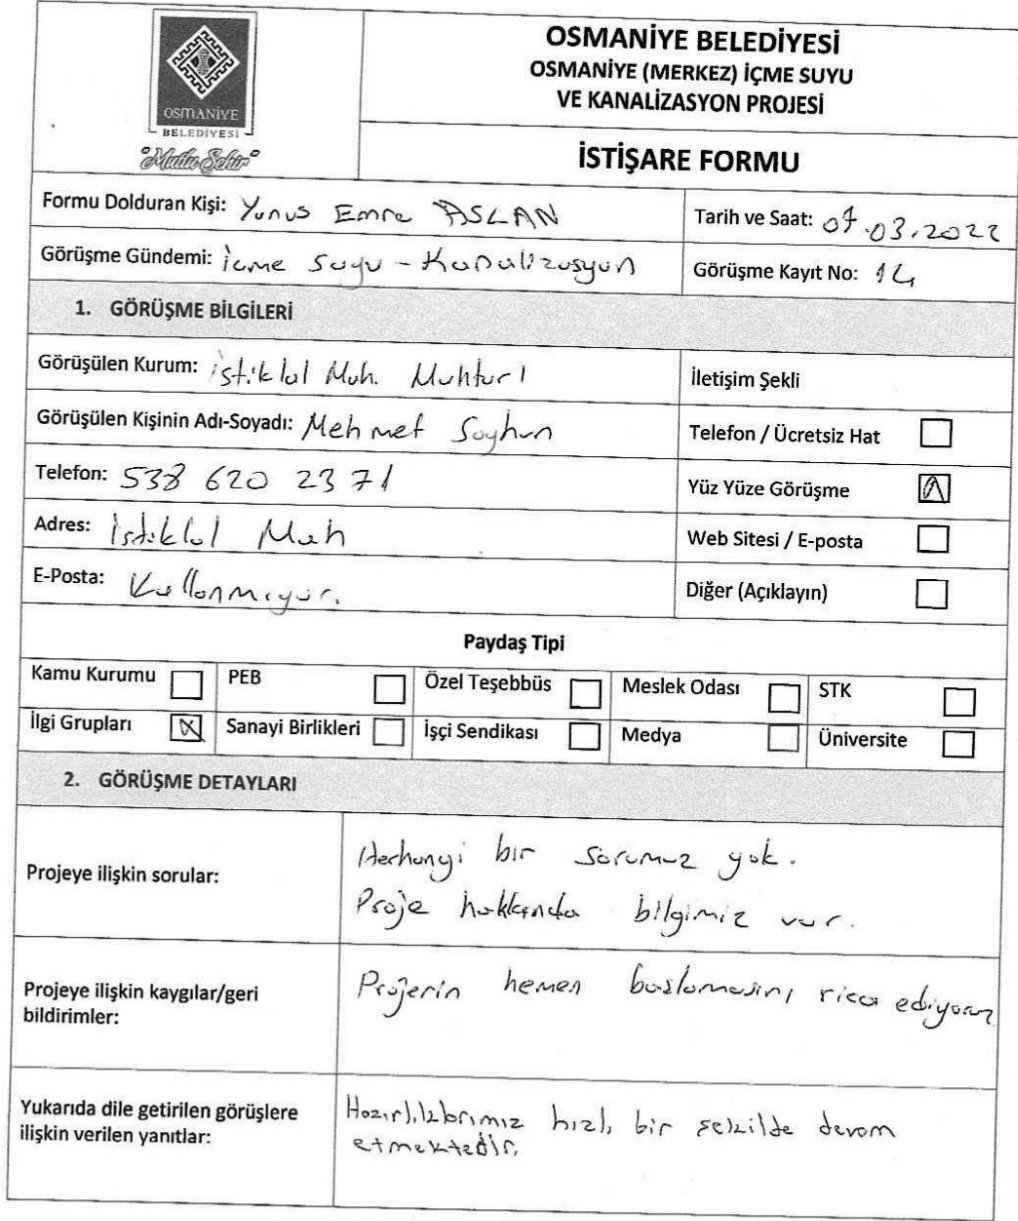 OSMANİYE
BELEDİYESİ
"Mutlu Şehir"
OSMANİYE BELEDİYESİ
OSMANİYE (MERKEZ) İÇME SUYU
VE KANALİZASYON PROJESİ
İSTİŞARE FORMU
Formu Dolduran Kişi: Yunus Emre ASLAN
Tarih ve Saat: 07.03.2022
Görüşme Gündemi: İçme Suyu - Kanalizasyon
Görüşme Kayıt No: 14
1. GÖRÜŞME BİLGİLERİ
Görüşülen Kurum: İstiklal Mah. Muhtarı
İletişim Şekli
Görüşülen Kişinin Adı-Soyadı: Mehmet Soyhan
Telefon / Ücretsiz Hat
Telefon: 538 620 2371
Yüz Yüze Görüşme
Adres: İstiklal Mah
Web Sitesi / E-posta
E-Posta: Kullanmıyor.
Diğer (Açıklayın)
Paydaş Tipi
Kamu Kurumu PEB Özel Teşebbüs Meslek Odası STK
İlgi Grupları Sanayi Birlikleri İşçi Sendikası Medya Üniversite
2. GÖRÜŞME DETAYLARI
Projeye ilişkin sorular:
Herhangi bir sorumuz yok.
Proje hakkında bilgimiz var.
Projeye ilişkin kaygılar/geri
bildirimler:
Projenin hemen başlamasını rica ediyoruz
Yukarıda dile getirilen görüşlere
ilişkin verilen yanıtlar:
Hazırlıklarımız hızlı bir şekilde devam
etmektedir.